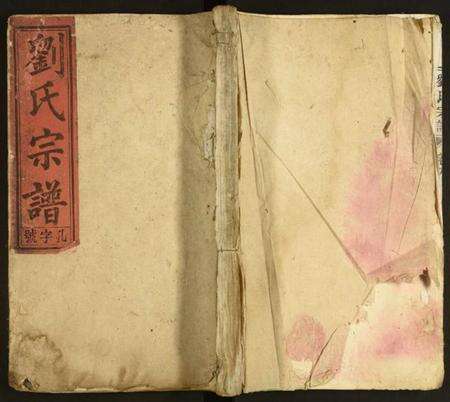 劉氏宗譜
孔字號